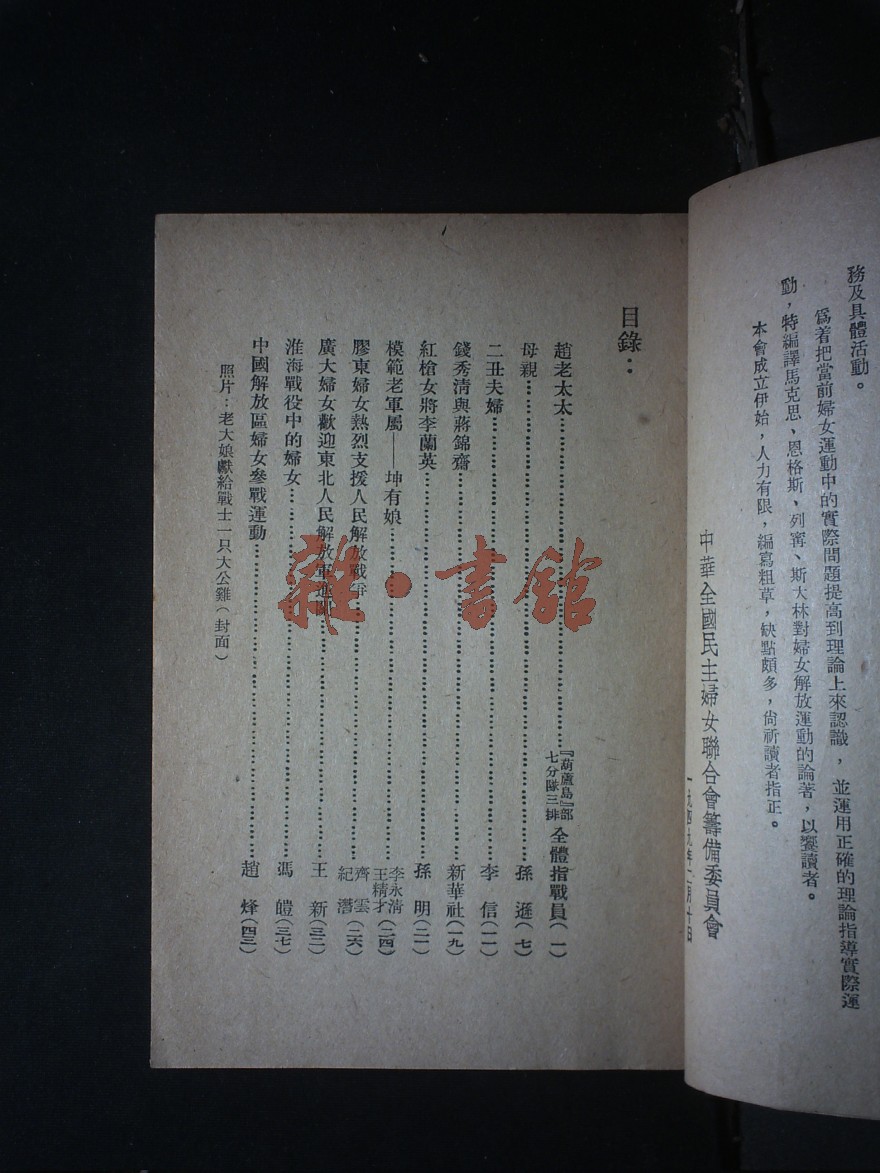 務及具體活動。
爲着把當前婦女運動中的實際問題提高到理論上來認識，並運用正確的理論指導實際運
動，特編譯馬克思、恩格斯、列寗、斯大林對婦女解放運動的論著，以饗讀者。
本會成立伊始，人力有限，編寫粗草，缺點頗多，尙祈讀者指正。
中華全國民主婦女聯合會籌備委員會
一九四九年二月十日
目錄：
趙老太太……『葫蘆島』部七分隊三排 全體指戰員（一）
母親……孫遜（七）
二丑夫婦……李信（一一）
錢秀清與蔣錦齋……新華社（一九）
紅槍女將李蘭英……孫明（二一）
模範老軍屬——坤有娘……李永清 王精才（二四）
膠東婦女熱烈支援人民解放戰爭……齊雲 紀潛（二六）
廣大婦女歡迎東北人民解放軍進關……王新（三二）
淮海戰役中的婦女……馮皚（三七）
中國解放區婦女參戰運動……趙烽（四三）
照片：老大娘獻給戰士一只大公雞（封面）
雜·書館